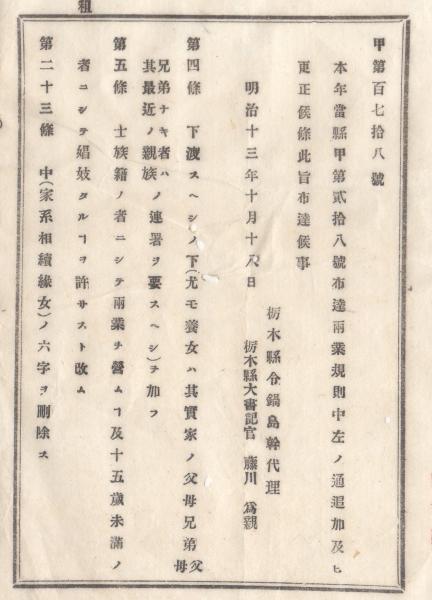 租
甲第百七拾八號
本年當縣甲第貳拾八號布達兩業規則中左ノ通追加及ヒ
更正候條此旨布達候事
明治十三年十月十八日
栃木縣令鍋島幹代理
栃木縣大書記官 藤川 爲親
第四條 下渡スヘシノ下(尤モ養女ハ其實家ノ父母兄弟父母
兄弟ナキ者ハ其最近ノ親族ノ連署ヲ要スヘシ)チ加フ
第五條 士族籍ノ者ニシテ兩業チ營ムヿ及十五歲未滿ノ
者ニシテ娼妓タルヿヲ許サスト改ム
第二十三條 中(家系相續緣女)ノ六字ヲ刪除ス